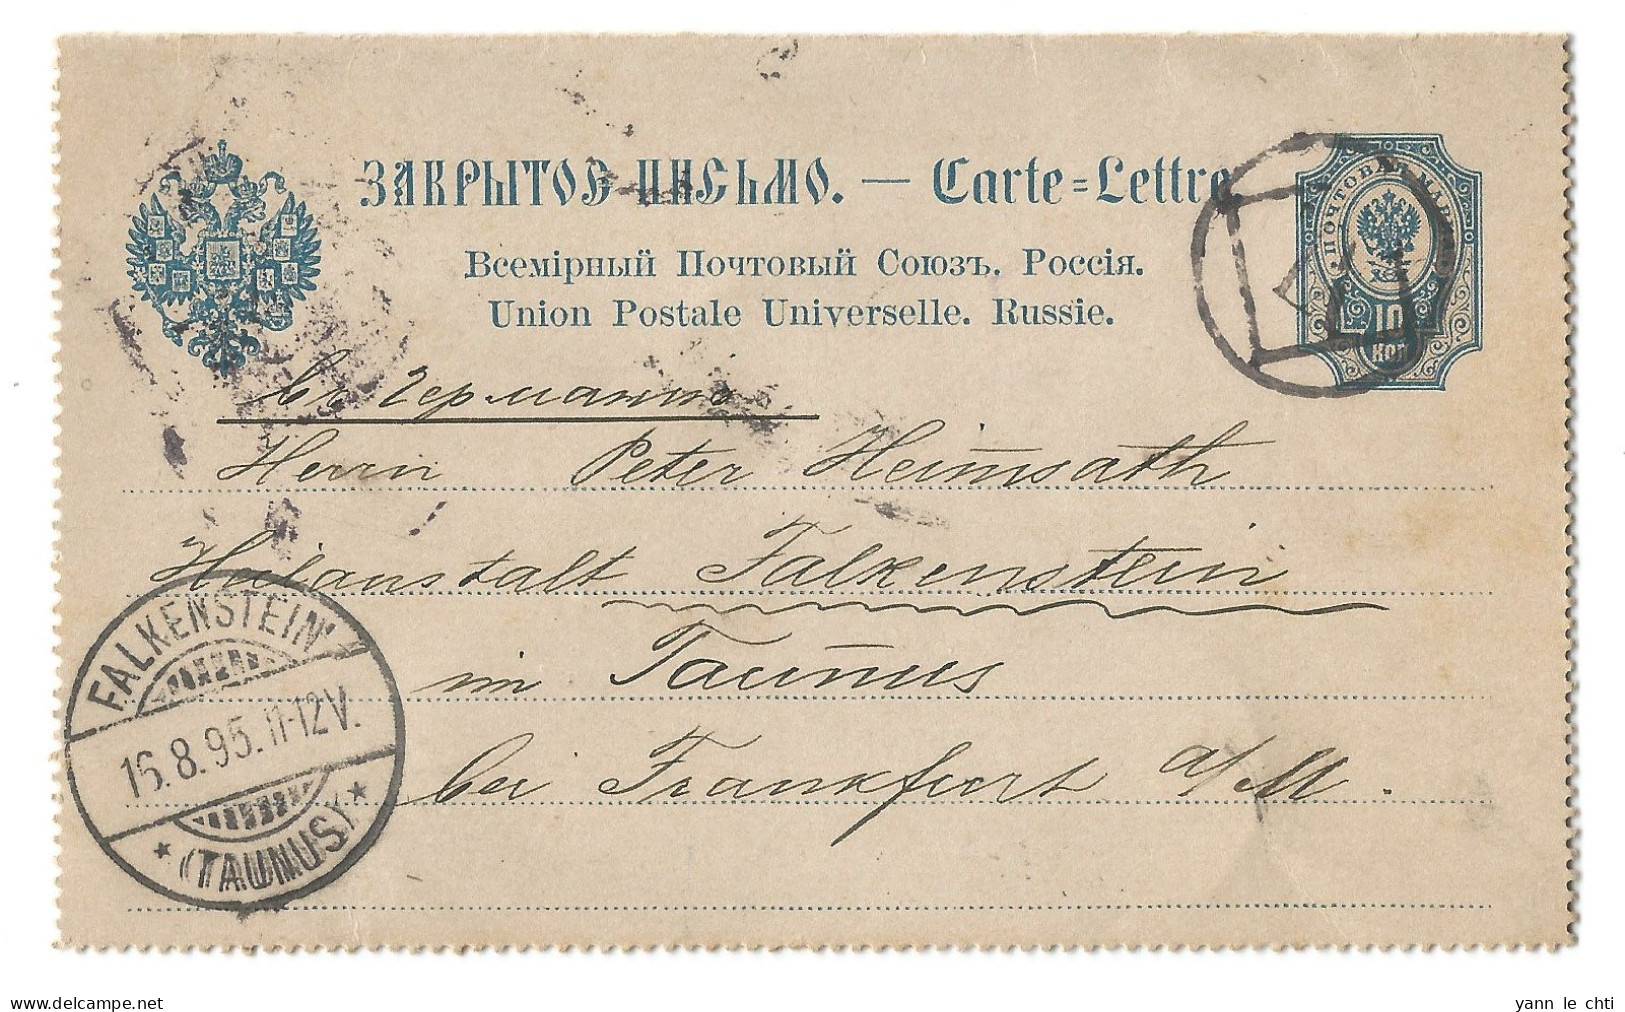 ЗАКРЫТОЕ ПИСЬМО. — Carte=Lettre
Всемірный Почтовый Союзъ. Россія.
Union Postale Universelle. Russie.
ПОЧТОВАЯ МАРКА
10
КОП
въ Германію
Herrn Peter Heimsath
Heilanstalt Falkenstein
im Taunus
bei Frankfurt a/M.
FALKENSTEIN
16.8.95.11-12V.
* (TAUNUS) *
www.delcampe.net
yann le chti